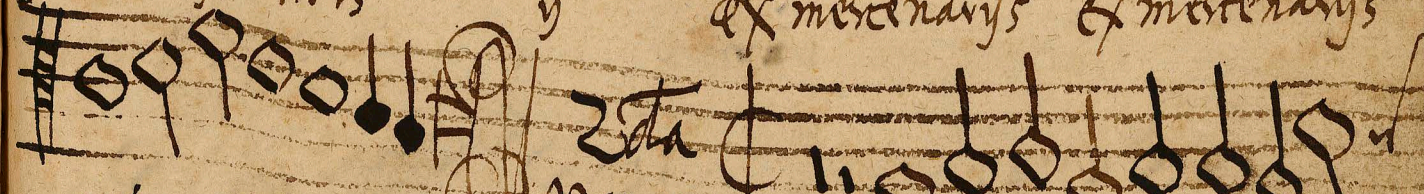 ij Ex mercenarijs Ex mercenarijs
2da